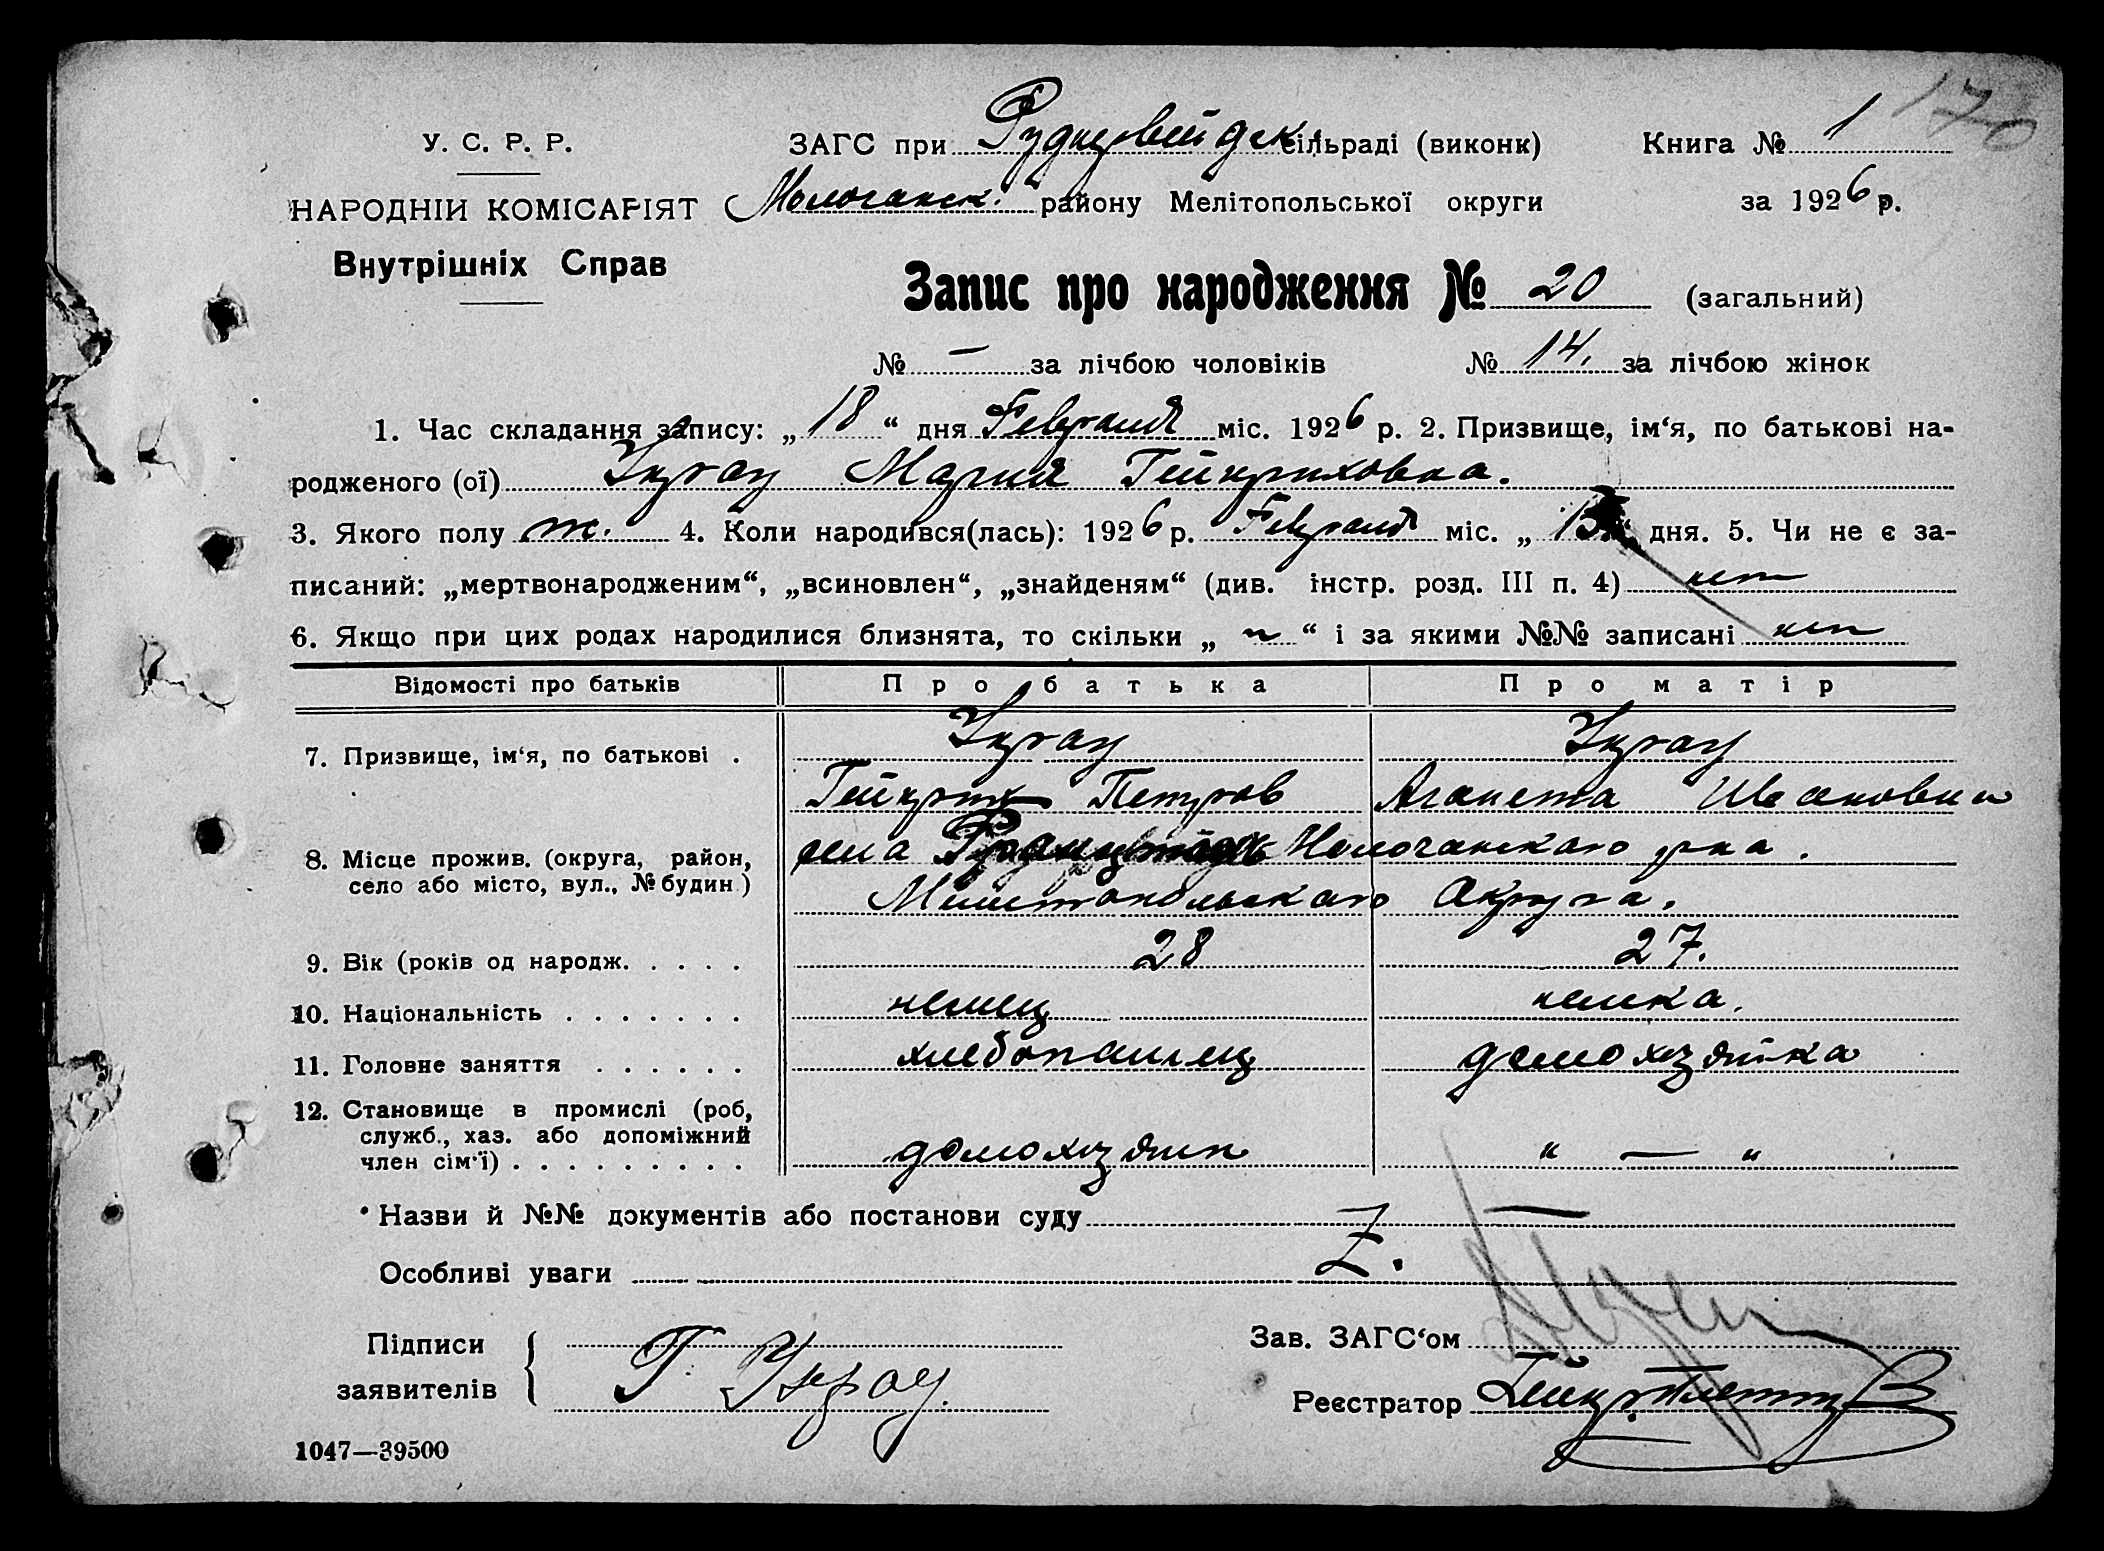 170
У. С. Р. Р. ЗАГС при сільраді (виконк) Книга № 1
НАРОДНІЙ КОМІСАРІЯТ Молочанск. району Мелітопольської округи за 1926 р.
Внутрішніх Справ
Запис про народження № 20 (загальний)
№ — за лічбою чоловіків № 14. за лічбою жінок
1. Час складання запису: „ 18 “ дня міс. 1926 р. 2. Призвище, ім‘я, по батькові на-
родженого (ої) Мария Гейнриховна.
3. Якого полу ж. 4. Коли народився(лась): 1926 р. міс. „ 15 “ дня. 5. Чи не є за-
писаний: „мертвонародженим“, „всиновлен“, „знайденям“ (див. інстр. розд. III п. 4) нет
6. Якщо при цих родах народилися близнята, то скільки „ “ і за якими №№ записані нет
Відомості про батьків Про батька Про матір
7. Призвище, ім‘я, по батькові .
Гейнрих Петров Аганета Ивановна
8. Місце прожив. (округа, район,
село або місто, вул., № будин.) села Молочанскаго рна.
Мелитопольскаго Округа.
9. Вік (років од народж. . . . . 28 27.
10. Національність . . . . . . . немец немка.
11. Головне заняття . . . . . . хлебопашец домохозяйка
12. Становище в промислі (роб,
служб., хаз. або допоміжний
член сім‘ї) . . . . . . . . . домохозяин „ — „
Назви й №№ документів або постанови суду —
Особливі уваги Z.
Підписи Зав. ЗАГС‘ом
заявителів Г. Реєстратор
1047—39500